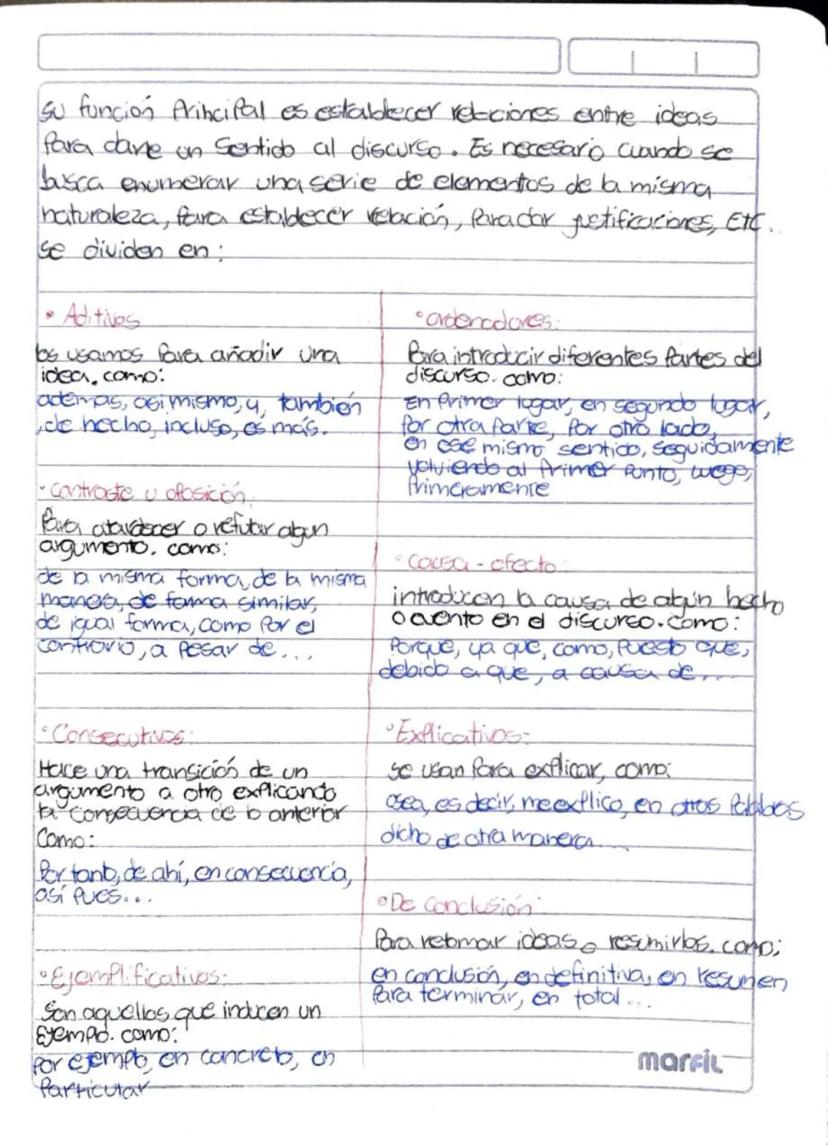 su función Principal es establecer relaciones entre ideas
Para darle un Sentido al discurso. Es necesario cuando se
busca enumerar una serie de elementos de la misma
naturaleza, Para establecer relación, Para dar justificaciones, Etc.
se dividen en:
• Aditivos
los usamos Para añadir una
idea. como:
además, asi mismo, y, también
, de hecho, incluso, es más.
• contraste u oposición
Para o refutar algun
argumento. como:
de la misma forma, de la misma
manera, de forma similar,
de igual forma, como Por el
contrario, a Pesar de...
• Consecutivos:
Hace una transición de un
argumento a otro explicando
la consecuencia de lo anterior
Como:
Por tanto, de ahí, en consecuencia,
así Pues...
• Ejemplificativos:
Son aquellos que inducen un
Ejemplo. como:
Por ejemplo, en concreto, en
Particular
• ordenadores:
Para introducir diferentes Partes del
discurso. como:
En Primer lugar, en segundo lugar,
Por otra Parte, Por otro lado,
en ese mismo sentido, seguidamente
volviendo al Primer Punto, luego,
Primeramente
• Causa - efecto:
introducen la causa de algún hecho
o evento en el discurso. como:
Porque, ya que, como, Puesto que,
debido a que, a causa de...
• Explicativos:
se usan Para explicar, como:
osea, es decir, me explico, en otras Palabras
dicho de otra manera...
• De Conclusión:
Para retomar ideas o resumirlas. como:
en conclusión, en definitiva, en resumen
Para terminar, en total...
marfil